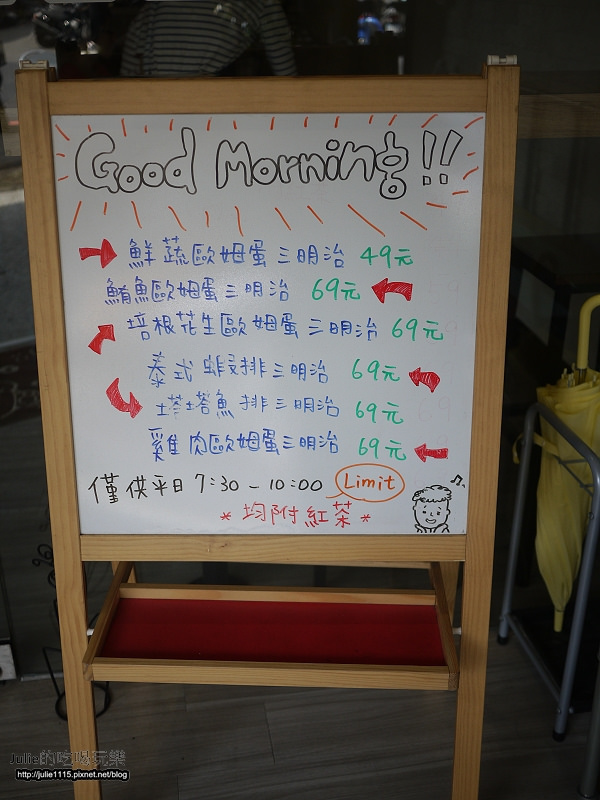 Good Morning!!
鮮蔬歐姆蛋三明治 49元
鮪魚歐姆蛋三明治 69元
培根花生歐姆蛋三明治 69元
泰式蝦排三明治 69元
塔塔魚排三明治 69元
雞肉歐姆蛋三明治 69元
僅供平日 7:30-10:00 Limit
*均附紅茶*
Julie的吃喝玩樂
http://julie1115.pixnet.net/blog